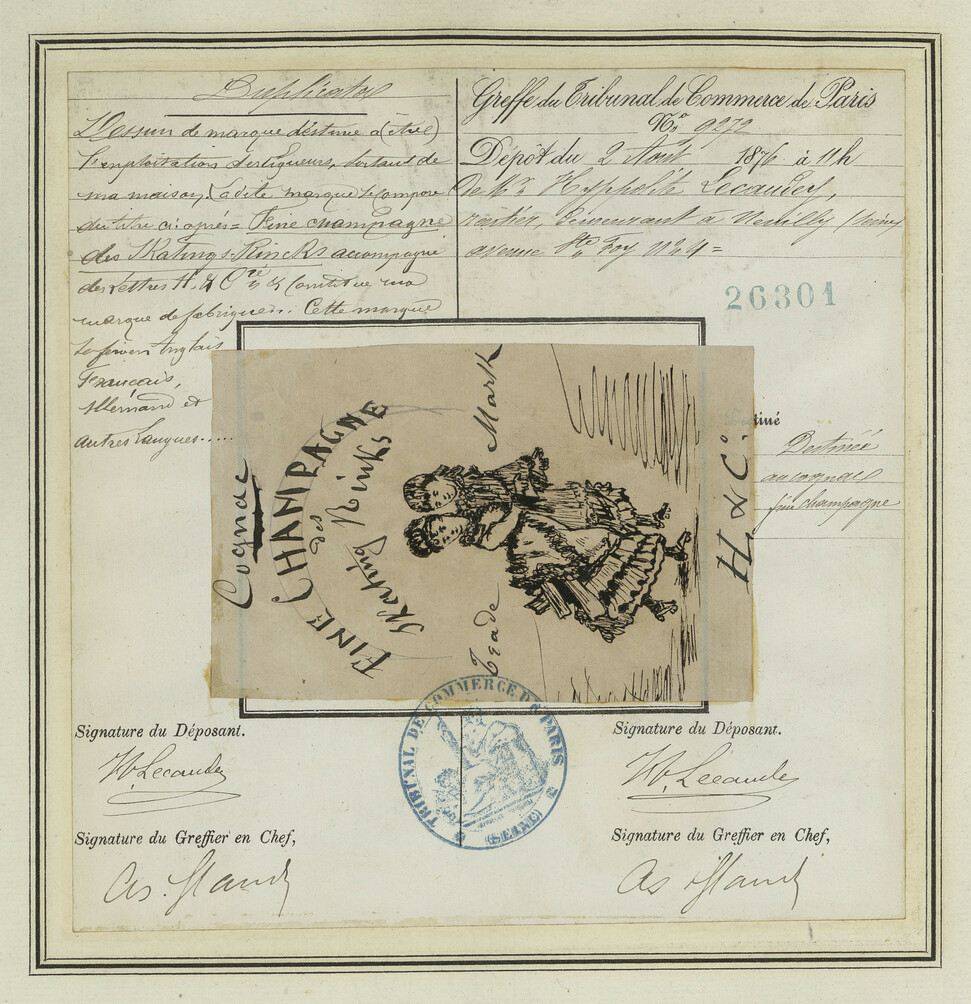 Duplicata
Dessin de marque destiné à (être)
l'exploitation des liqueurs, sortant de
ma maison. La dite marque se compose
du titre ci-après = Fine champagne
des Skatings-Rincks accompagné
des lettres H. & Cie & Constitue ma
marque de fabrique. Cette marque
se fera en Anglais
Français,
Allemand et
autres langues.....
Greffe du Tribunal de Commerce de Paris
No. 9272
Dépôt du 2 Août 1876 à 11h
de Mr. Hyppolite Lecaudey,
rentier, demeurant à Neuilly (Seine)
avenue Ste Foy No. 4 =
26301
tiné
Destinée
au cognac
fine champagne
Cognac
FINE CHAMPAGNE
des
Skating Rinks
Trade Mark
H & Co.
TRIBUNAL DE COMMERCE DE PARIS
(SEINE)
Signature du Déposant.
H. Lecaudey
Signature du Greffier en Chef,
Signature du Déposant.
H. Lecaudey
Signature du Greffier en Chef,